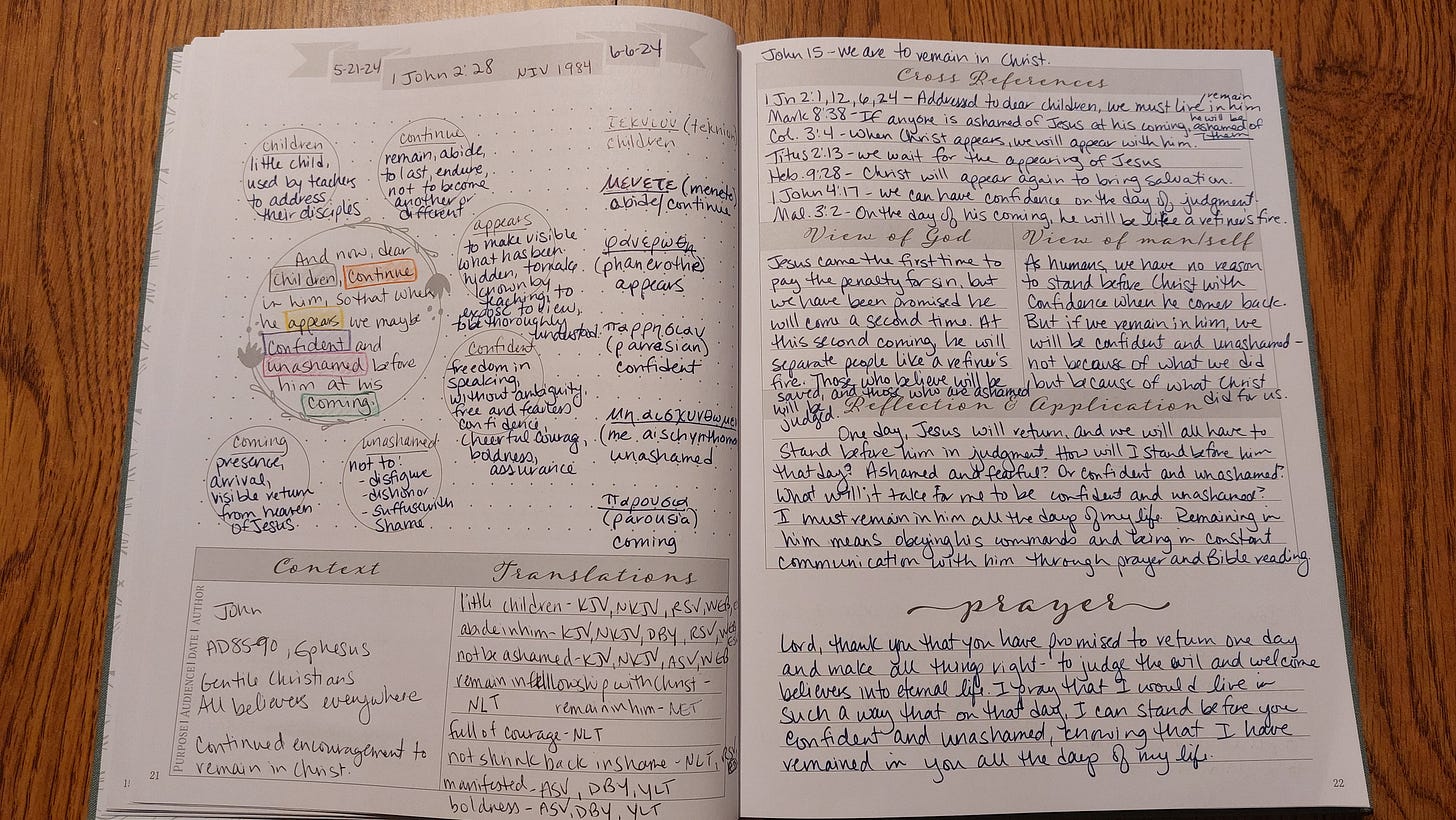 5-21-24
1 John 2:28 NIV 1984
6-6-24
children
little child,
used by teachers
to address
their disciples
continue
remain, abide,
to last, endure,
not to become
another or
different
And now, dear
children, continue
in him, so that when
he appears we may be
confident and
unashamed before
him at his
coming.
appears
to make visible
what has been
hidden, to make
known by
teaching, to
expose to view,
to be thoroughly
understood.
confident
freedom in
speaking,
without ambiguity,
free and fearless
confidence,
cheerful courag,
boldness,
assurance
coming
presence,
arrival,
visible return
from heaven
of Jesus.
unashamed
not to:
- disfigure
- dishonor
- suffuse with
shame
τεκνιον (teknion
children
μενετε (menete)
abide/continue
φανερωθη
(phanerothe)
appears
παρρησιαν
(parresian)
confident
μη αισχυνθωμε
(me aischynthome
unashamed
παρουσια
(parousia)
coming
Context
PURPOSE | AUDIENCE | DATE | AUTHOR
John
AD 85-90, Ephesus
Gentle Christians
All believers everywhere
Continued encouragement to
remain in Christ.
21
Translations
little children - KJV, NKJV, RSV, WEB,
abide in him - KJV, NKJV, DBY, RSV,
not be ashamed - KJV, NKJV, ASV, WEB
remain in fellowship with Christ -
NLT remain in him - NET
full of courage - NLT
not shrink back in shame - NLT,
manifested - ASV, DBY, YLT
boldness - ASV, DBY, YLT
John 15 - We are to remain in Christ.
Cross References
1 Jn 2:1, 12, 6, 24 - Addressed to dear children, we must live/remain in him
Mark 8:38 - If anyone is ashamed of Jesus at his coming, he will be ashamed of them
Col. 3:4 - When Christ appears, we will appear with him.
Titus 2:13 - we wait for the appearing of Jesus
Heb. 9:28 - Christ will appear again to bring salvation.
1 John 4:17 - we can have confidence on the day of judgment.
Mal. 3:2 - On the day of his coming, he will be like a refiner's fire.
View of God
Jesus came the first time to
pay the penalty for sin, but
we have been promised he
will come a second time. At
this second coming, he will
separate people like a refiner's
fire. Those who believe will be
saved, and those who are ashamed
will be
judged.
View of man/self
As humans, we have no reason
to stand before Christ with
confidence when he comes back.
But if we remain in him, we
will be confident and unashamed -
not because of what we did
but because of what Christ
did for us.
Reflection & Application
One day, Jesus will return, and we will all have to
stand before him in judgment. How will I stand before him
that day? Ashamed and fearful? Or confident and unashamed?
What will it take for me to be confident and unashamed?
I must remain in him all the days of my life. Remaining in
him means obeying his commands and being in constant
communication with him through prayer and Bible reading
prayer
Lord, thank you that you have promised to return one day
and make all things right - to judge the evil and welcome
believers into eternal life. I pray that I would live in
such a way that on that day, I can stand before you
confident and unashamed, knowing that I have
remained in you all the days of my life.
22